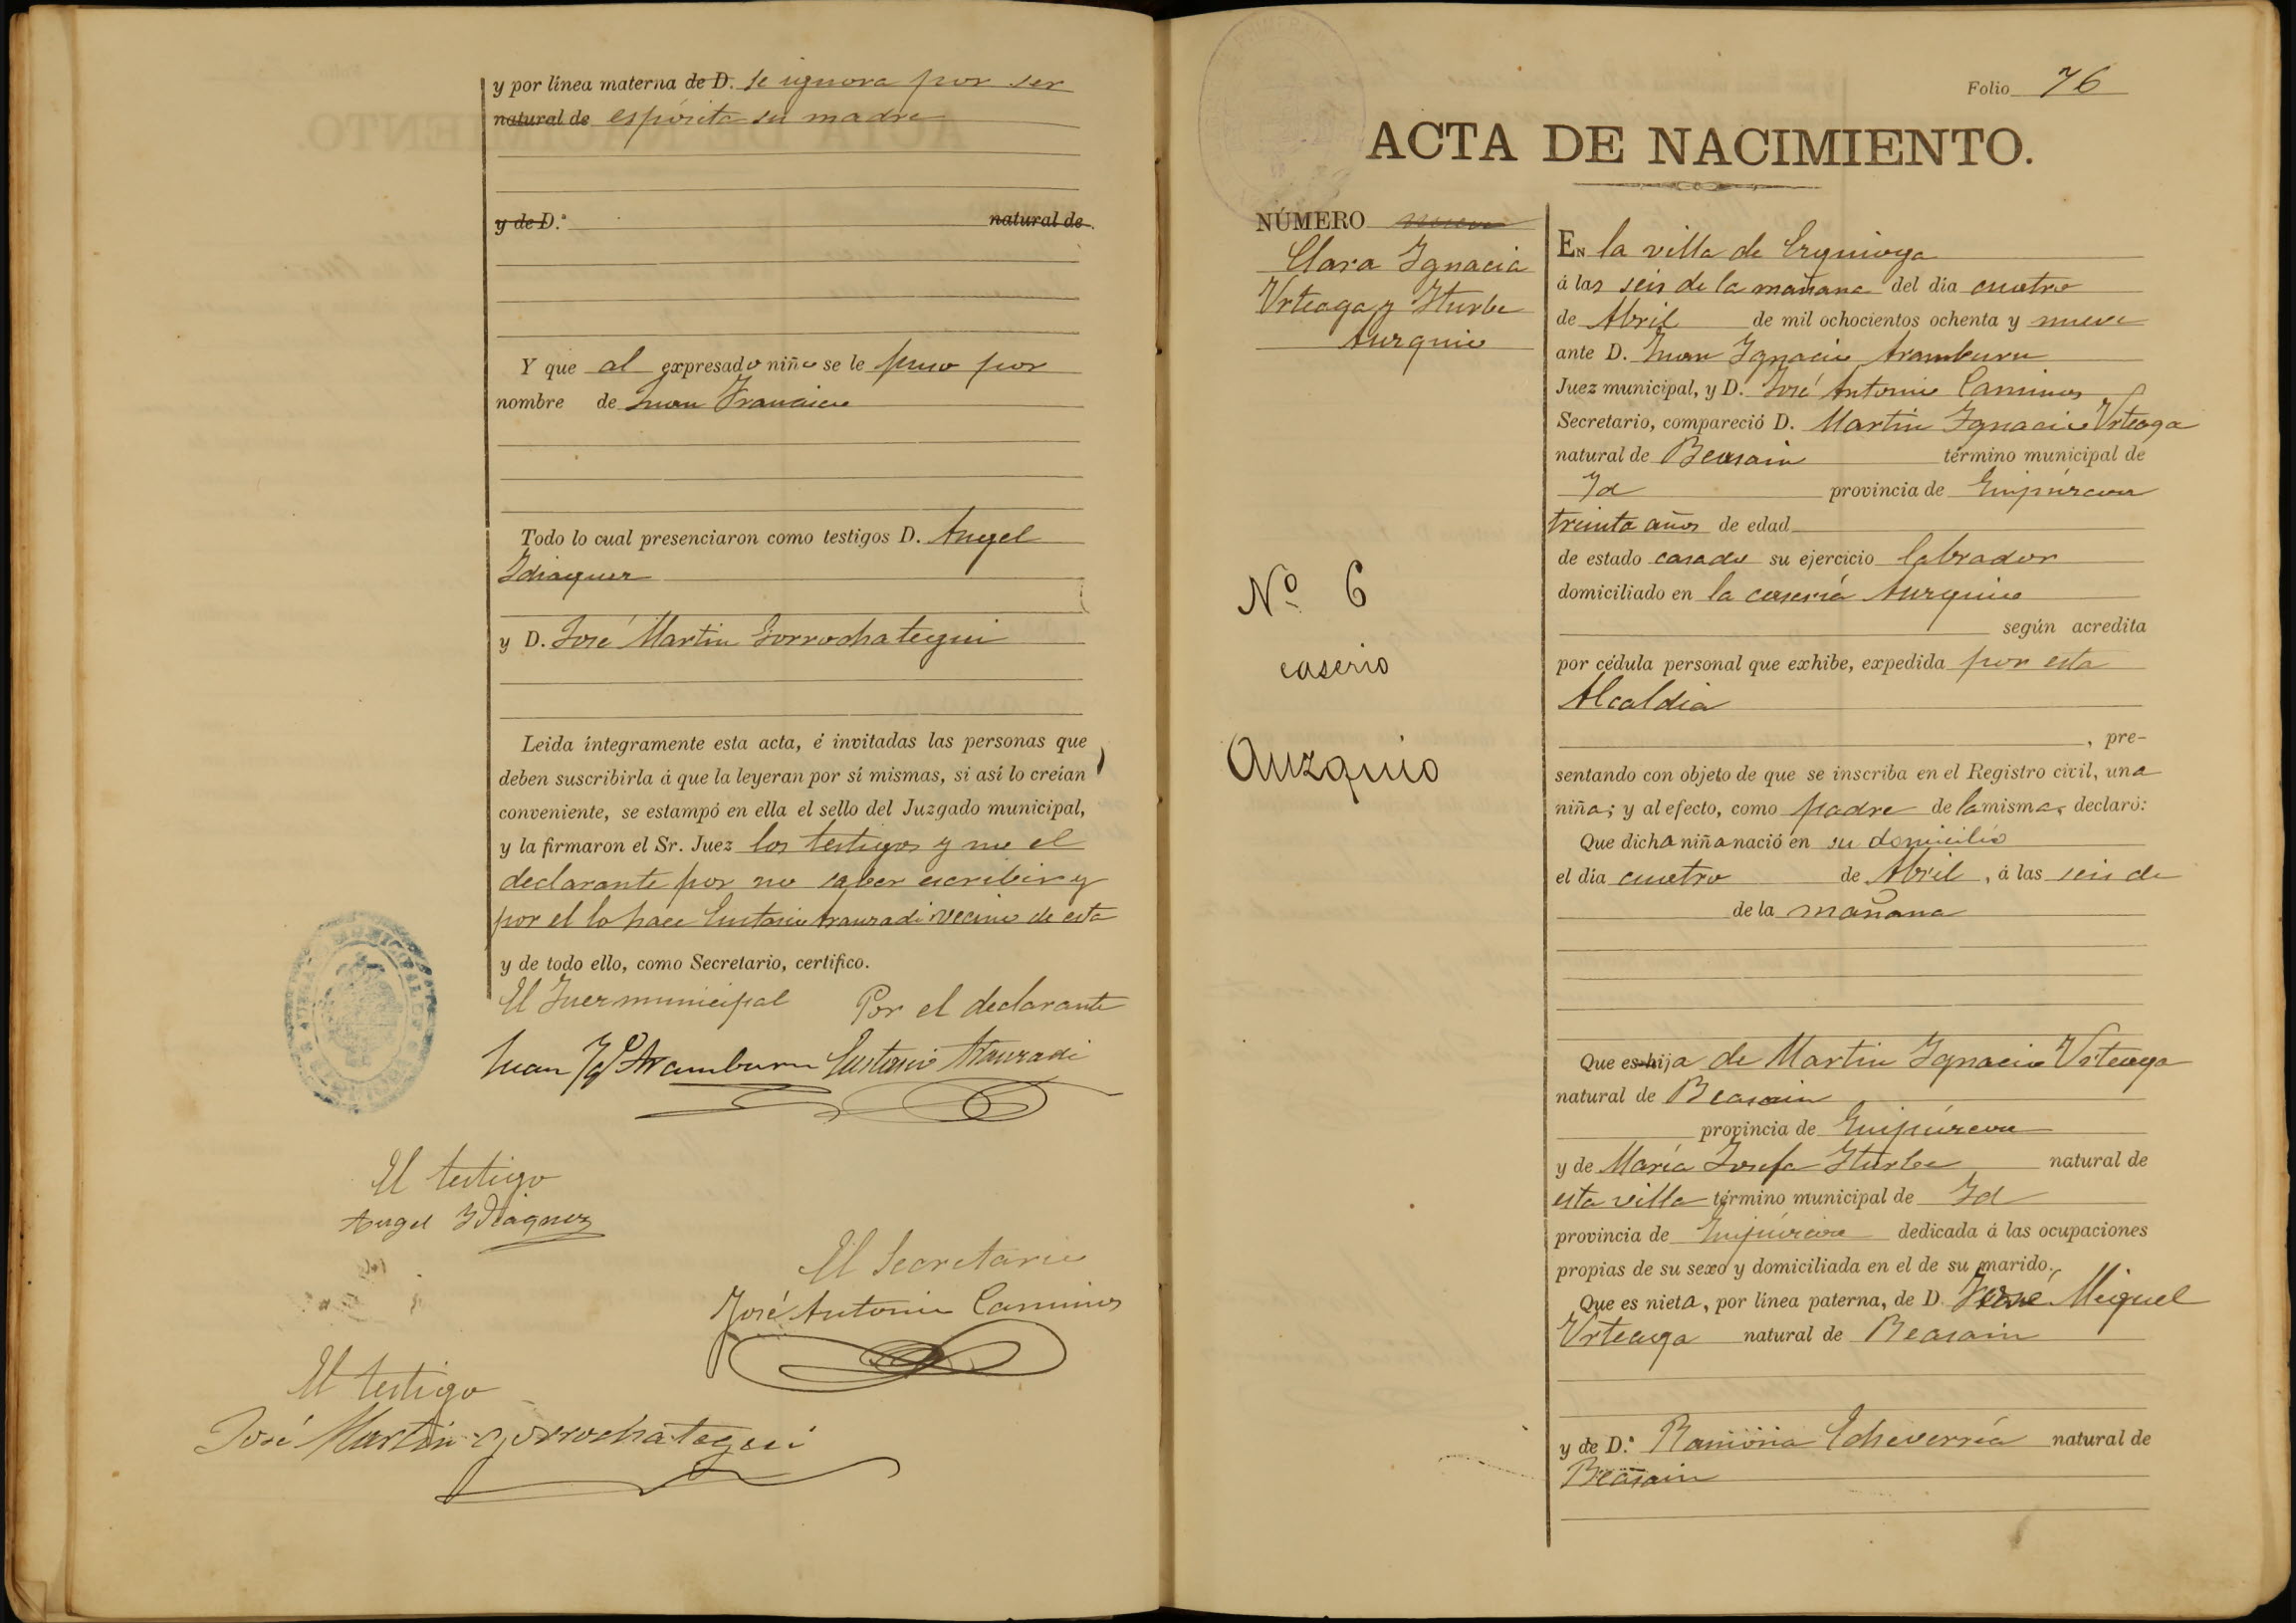 y por línea materna de D. se ignora por ser
natural de espósita su madre
y de D.ª natural de
Y que al expresado niño se le puso por
nombre de Juan Francisco
Todo lo cual presenciaron como testigos D. Angel
Idiaquez
y D. José Martin Gorrochategui
Leida íntegramente esta acta, é invitadas las personas que
deben suscribirla á que la leyeran por sí mismas, si así lo creían
conveniente, se estampó en ella el sello del Juzgado municipal,
y la firmaron el Sr. Juez los testigos y no el
declarante por no saber escribir y
por el lo hace Eustasio Aranzadi vecino de esta
y de todo ello, como Secretario, certifico.
El Juez municipal Por el declarante
Juan Ygº Aramburu Eustasio Aranzadi
El testigo
Angel Ydiaquez
El Secretario
José Antonio Caminos
El testigo
José Martin Gorrochategui
Folio 76
ACTA DE NACIMIENTO.
NÚMERO nueve
Clara Ygnacia
Urteaga y Yturbe
Aurquio
Nº 6
caserio
Auzquio
EN la villa de Ezquioga
á las seis de la mañana del dia cuatro
de Abril de mil ochocientos ochenta y nueve
ante D. Juan Ygnacio Aramburu
Juez municipal, y D. José Antonio Caminos
Secretario, compareció D. Martin Ygnacio Urteaga
natural de Beasain término municipal de
Id provincia de Guipúzcoa
treinta años de edad
de estado casado su ejercicio labrador
domiciliado en la casería Aurquio
según acredita
por cédula personal que exhibe, expedida por esta
Alcaldia
, pre-
sentando con objeto de que se inscriba en el Registro civil, una
niña; y al efecto, como padre de la misma, declaró:
Que dicha niña nació en su domicilio
el dia cuatro de Abril, á las seis de
de la mañana
Que es hija de Martin Ygnacio Urteaga
natural de Beasain
provincia de Guipúzcoa
y de María Josefa Yturbe natural de
esta villa término municipal de Id
provincia de Guipúzcoa dedicada á las ocupaciones
propias de su sexo y domiciliada en el de su marido.
Que es nieta, por línea paterna, de D. José Miguel
Urteaga natural de Beasain
y de D.ª Ramona Echeverría natural de
Beasain